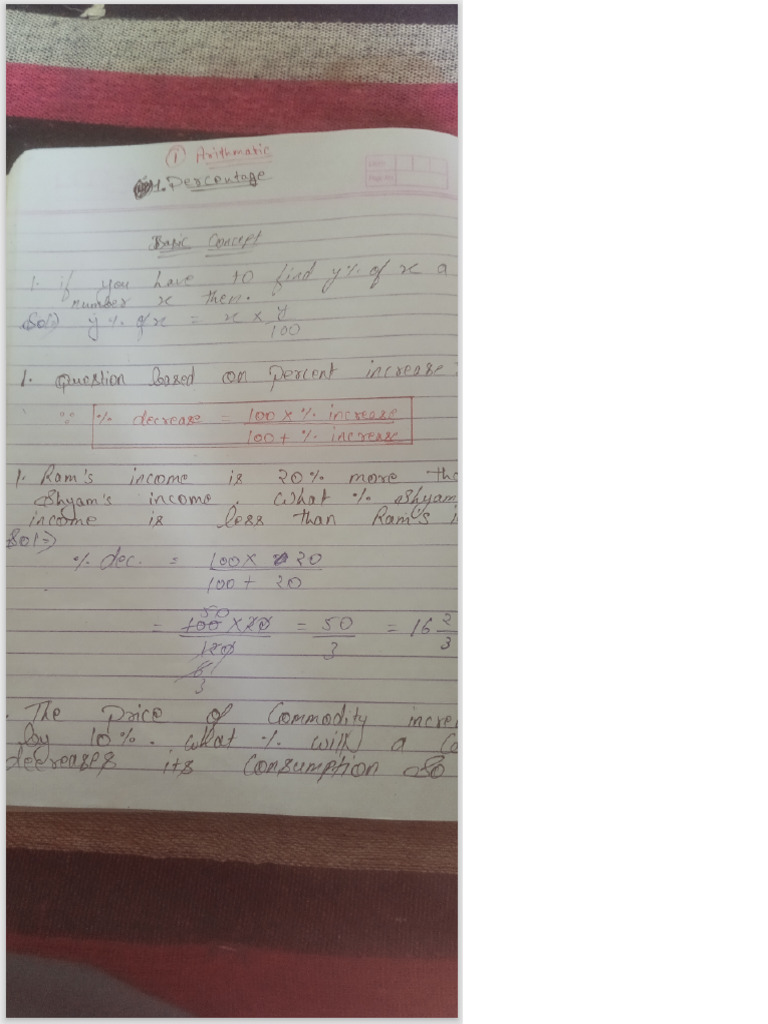 ① Arithmatic
1. Percentage
Basic Concept
1. if you have to find y% of x a
number x then.
Sol⇒ y% of x = x × y/100
1. Question based on percent increase
∵ % decrease = 100 × % increase / 100 + % increase
1. Ram's income is 20% more tha
Shyam's income. What % Shyam
income is less than Ram's i
Sol⇒
% dec. = 100 × 20 / 100 + 20
= 100 × 20 / 120 = 50/3 = 16 2/3
50
6
3
. The Price of Commodity incre
by 10%. What % will a Co
decreases its Consumption So